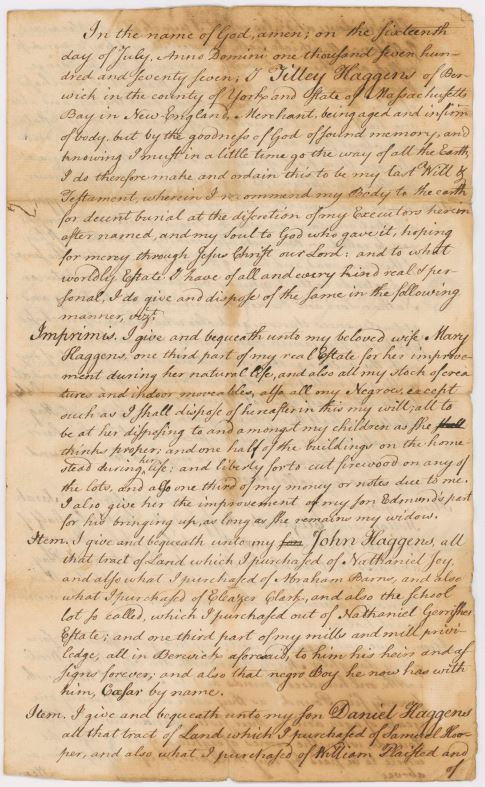 In the name of God, amen; on the sixteenth
day of July, Anno Domini one thousand seven hun-
dred and seventy seven; I Tilley Haggens of Ber-
wick in the county of York and State of Massachusetts
Bay in New-England, Merchant, being aged and infirm
of body, but by the goodness of God of sound memory, and
knowing I must in a little time go the way of all the Earth,
I do therefore make and ordain this to be my last Will &
Testament, wherein I recommand my Body to the earth
for decent burial at the discretion of my Executors herein
after named, and my Soul to God who gave it, hoping
for mercy through Jesus Christ our Lord: and to what
worldly Estate I have of all and every kind real & per-
sonal, I do give and dispose of the same in the following
manner, vizt.
Imprimis. I give and bequeath unto my beloved wife Mary
Haggens, one third part of my real Estate for her improve-
ment during her natural life, and also all my stock of crea
tures and indoor moveables, also all my Negroes, except
such as I shall dispose of hereafter in this my will; all to
be at her disposing to and amongst my children as she shall
thinks proper; and one half of the buildings on the home-
stead during her life; and liberty for to cut firewood on any of
the lots, and also one third of my money or notes due to me.
I also give her the improvement of my son Edmund's part
for his bringing up, as long as she remains my widow.
Item. I give and bequeath unto my son John Haggens, all
that tract of Land which I purchased of Nathaniel Joy,
and also what I purchased of Abraham Barns, and also
what I purchased of Eleazer Clark, and also the school
lot so called, which I purchased out of Nathaniel Gerrishes
Estate; and one third part of my mills and mill privi-
ledge, all in Berwick aforesaid, to him his heirs and as
signs forever; and also that negro Boy he now has with
him, Cæsar by name.
Item. I give and bequeath unto my son Daniel Haggens
all that tract of Land which I purchased of Samuel Hoo-
per, and also what I purchased of William Plaisted and
of